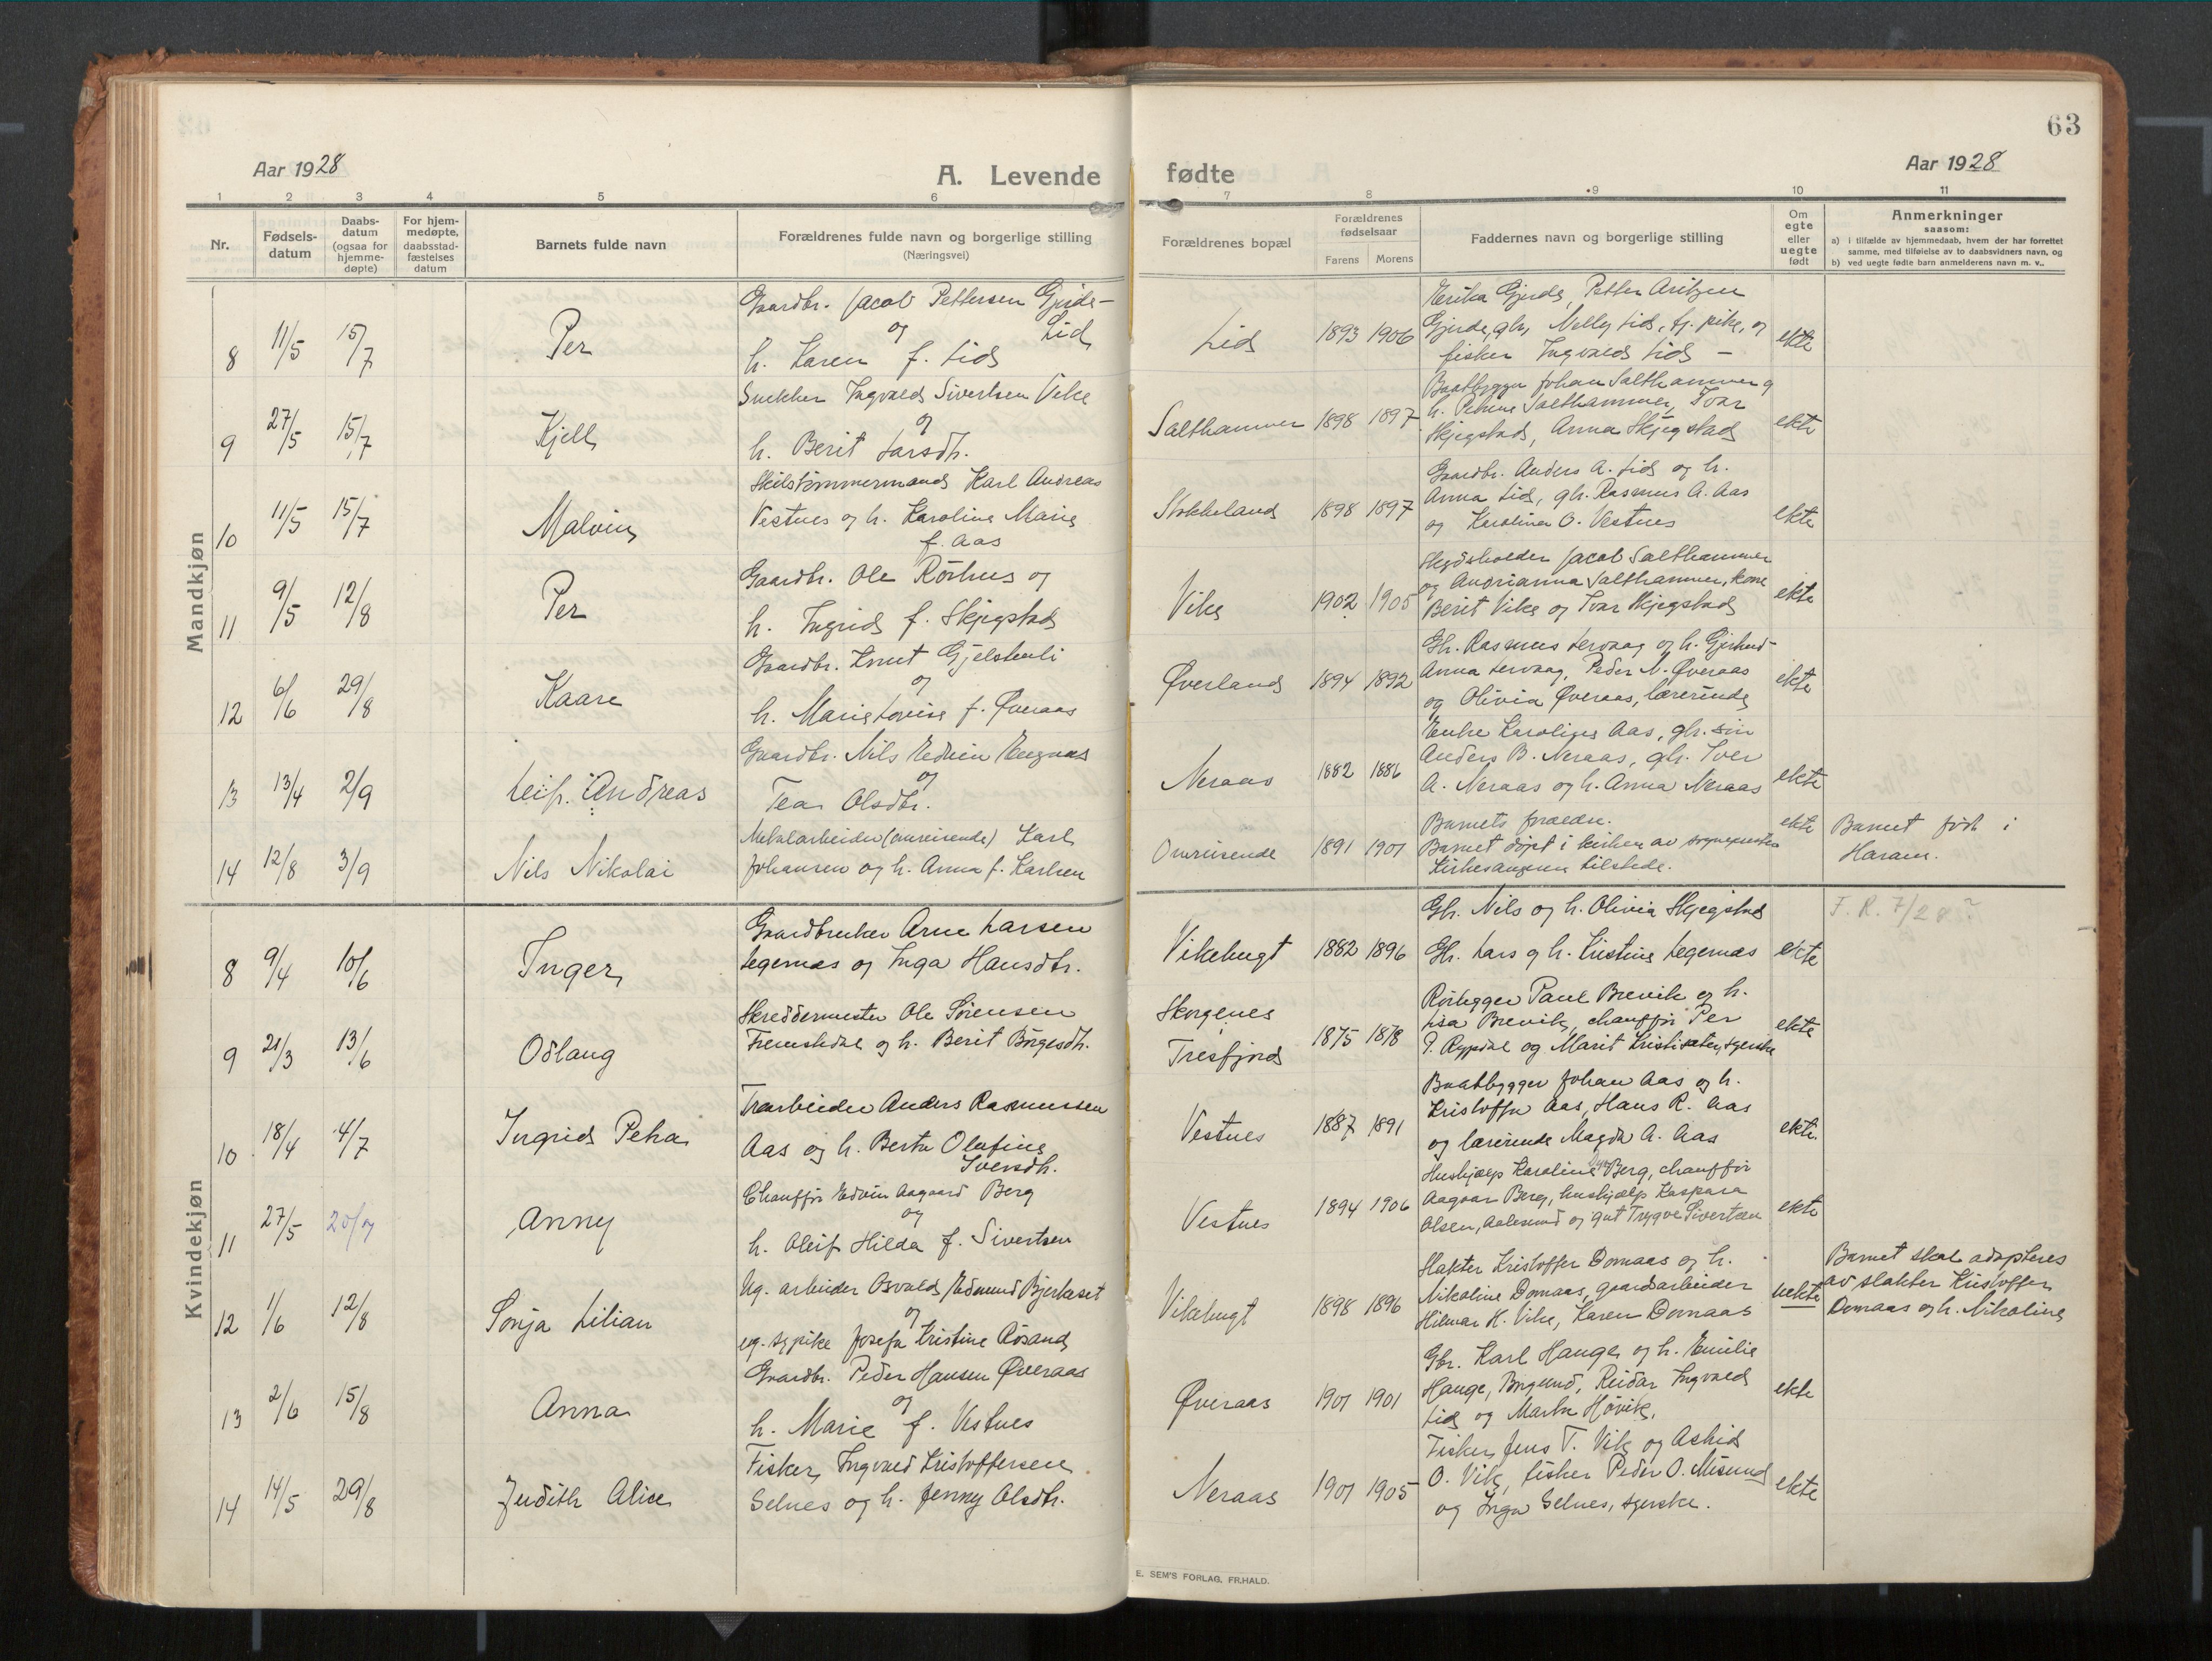 63
Aar 1928
A. Levende
fødte
Aar 1928
1 2 3 4 5 6 7 8 9 10 11
Nr.
Fødsels-
datum
Daabs-
datum
(ogsaa for
hjemme-
døpte)
For hjem-
medøpte,
daabsstad-
fæstelses
datum
Barnets fulde navn
Forældrenes fulde navn og borgerlige stilling
(Næringsvei)
Forældrenes bopæl
Forældrenes
fødselsaar
Farens Morens
Faddernes navn og borgerlige stilling
Om
egte
eller
uegte
født
Anmerkninger
saasom:
a) i tilfælde av hjemmedaab, hvem der har forrettet
samme, med tilføielse av to daabsvidners navn, og
b) ved uegte fødte barn anmelderens navn m. v..
Mandkjøn
8 11/5 15/7 Per
Gaardbr. Jacob Pettersen Gjerde-
og Lid
h. Karen f. Lid
Lid 1893 1906
Erika Gjerde, Petter
Gjerde, gbr, Nelly Lid, tj. pike, og
fisker Ingvald Lid –
ekte
9 27/5 15/7 Kjell
Snekker Ingvald Sivertsen Vike
og
h. Berit Larsdtr.
Salthammer 1898 1897
Baatbygger Johan Salthammer og
h. Petrine Salthammer, Ivar
Skjegstad, Anna Skjegstad
ekte
10 11/5 15/7 Malvin
Karl Andreas
Vestnes og h. Karoline Marie
f. Aas
Stokkeland 1898 1897
Gaardbr. Anders A. Lid og h.
Anna Lid, gbr. Rasmus A. Aas
og Karoline O. Vestnes
ekte
11 9/5 12/8 Per
Gaardbr. Ole Rørhus og
h. Ingrid f. Skjegstad
Vike 1902 1905
Jacob Salthammer
og Andrianna Salthammer, kone
Berit Vike og Ivar Skjegstad
ekte
12 6/6 29/8 Kaare
Gaardbr. Knut Gjelstenli
og
h. Marie Lovise f. Øveraas
Øverland 1894 1892
Gbr. Rasmus Lervaag og h. Gjertrud-
Anna Lervaag, Peder N. Øveraas
og Olivia Øveraas, lærerinde
ekte
13 13/4 2/9 Leif Andreas
Gaardbr. Nils Edvin
og
Tea Olsdtr.
Neraas 1882 1886
Enke Karoline Aas, gbr. søn
Anders B. Neraas, gbr. Iver
A. Neraas og h. Anna Neraas
ekte
14 12/8 3/9 Nils Nikolai
Metalarbeider (omreisende) Karl
Johansen og h. Anna f. Karlsen
Omreisende 1891 1901
Barnets forældre.
Barnet døpt i kirken av sognepresten
Kirkesangeren tilstede.
ekte
Barnet født i
Haram.
Kvindekjøn
8 9/4 10/6 Inger
Gaardbruker Arne Larsen
Legernes og Inga Hansdtr.
Vikebugt 1882 1896
Gbr. Nils og h. Olivia Skjegstad
Gbr. Lars og h. Kristine Legernes
ekte
F. R. 7/28?
9 21/3 13/6 Odlaug
Skreddermester Ole Sørensen
Fremstedal og h. Berit Børgesdtr.
Skorgenes
Tresfjord
1875 1878
Rørlegger Paul Brevik og h.
Lisa Brevik, chauffør Per
P. Rypdal og Marit Kristisæter, syerske
ekte
10 18/4 4/7 Ingrid Petra
Træarbeider Anders Rasmussen
Aas og h. Berte Olufine
Iversdtr.
Vestnes 1887 1891
Baatbygger Johan Aas og h.
Kristoffa Aas, Hans R. Aas
og lærerinde Magda A. Aas
ekte.
11 27/5 Anny
Chauffør Edvin Aagaard Berg
og
h. Hilda f. Sivertsen
Vestnes 1894 1906
Hushjælp Karoline Berg, chauffør
Aagaar Berg, hushjælp Kaspara
Olsen, Aalesund og gut Trygve Sivertsen
ekte
12 1/6 12/8 Sonja Lilian
Ug. arbeider Osvald Edmund Bjerkeset
og
ug. sypike Josefa Kristine Røsand
Vikebugt 1898 1896
Slakter Kristoffer Domaas og h.
Nikoline Domaas, gaardarbeider
Hilmar H. Vike, Karen Domaas
uekte
Barnet skal adopteres
av slakter Kristoffer
Domaas og h. Nikoline
13 2/6 15/8 Anna
Gaardbr. Peder Hansen Øveraas
og
h. Marie f. Vestnes
Øveraas 1901 1901
Gbr. Karl Hauge og h. Emilie
Hauge, Borgund, Reidar Ingvald
Lid og Marta Høvik.
ekte
14 14/5 29/8 Judith Alice
Fisker Ingvald Kristoffersen
Selnes og h. Jenny Olsdtr.
Neraas 1901 1905
Fisker Jens T. Vik og Astrid
O. Vik, fisker Peder O. Misund
og Inga Selnes, syerske.
ekte
E. SEM'S FORLAG, FR.HALD.